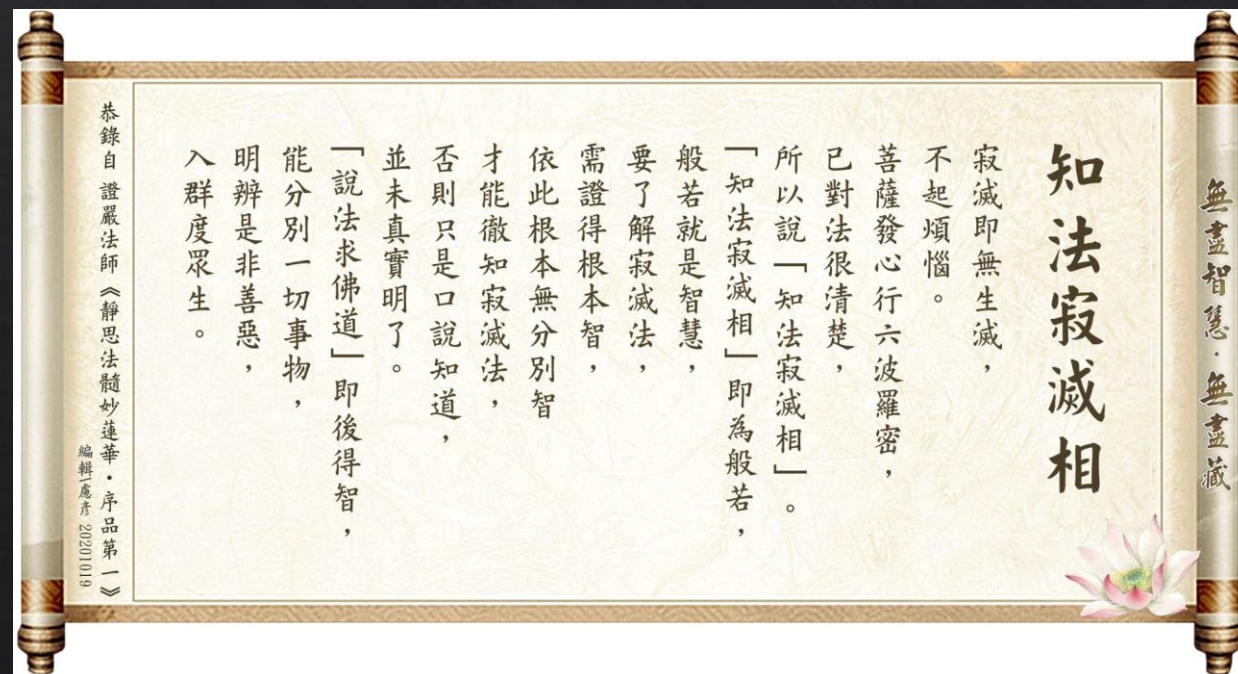 無盡智慧．無盡藏
知法寂滅相
寂滅即無生滅，
不起煩惱。
菩薩發心行六波羅密，
已對法很清楚，
所以說「知法寂滅相」。
「知法寂滅相」即為般若，
般若就是智慧，
要了解寂滅法，
需證得根本智，
依此根本無分別智
才能徹知寂滅法，
否則只是口說知道，
並未真實明了。
「說法求佛道」即後得智，
能分別一切事物，
明辨是非善惡，
入群度眾生。
恭錄自 證嚴法師《靜思法髓妙蓮華．序品第一》
編輯/慮彥 20201019